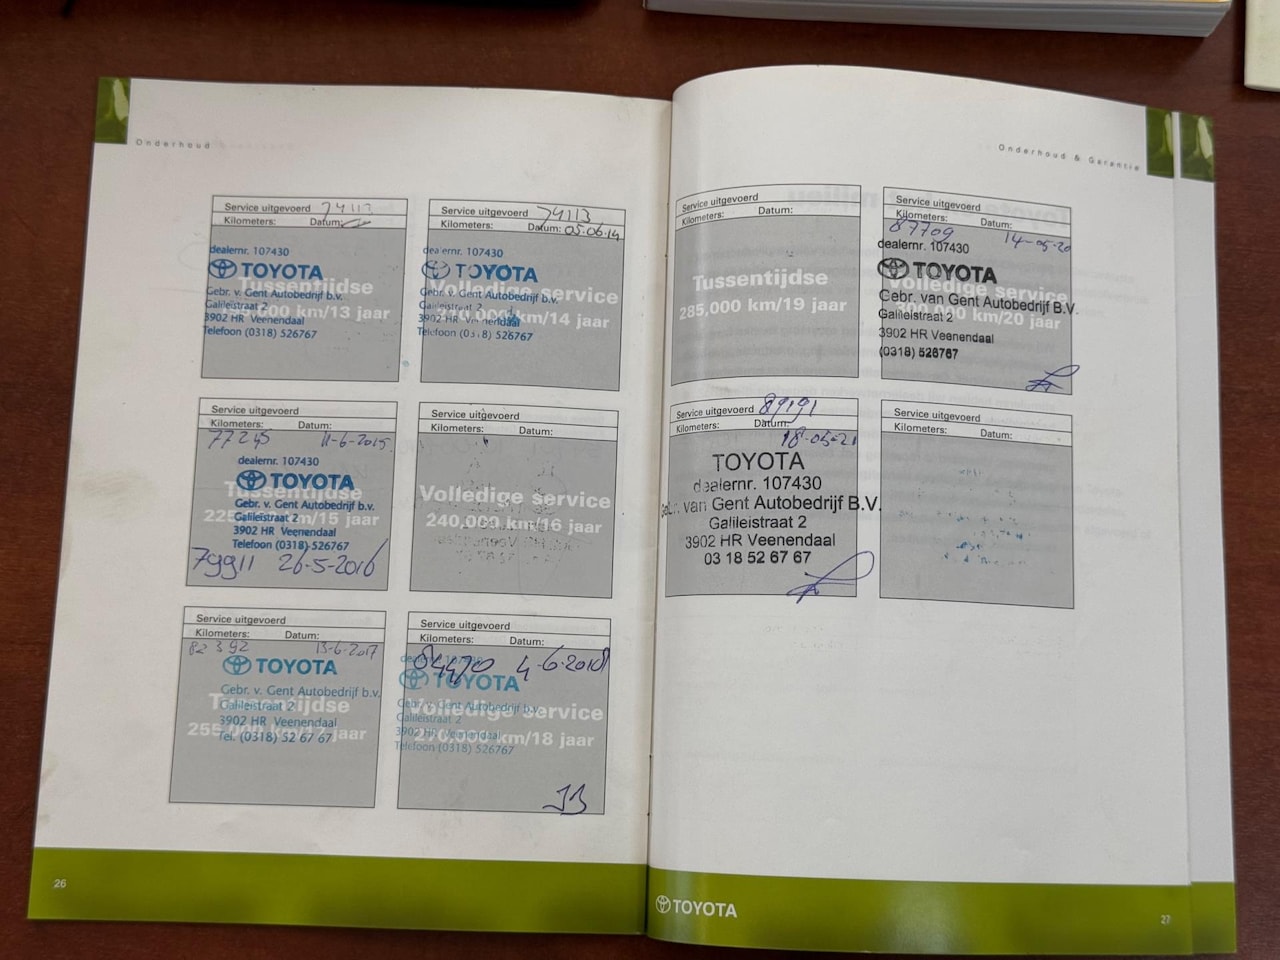 Onderhoud
Service uitgevoerd 74113
Kilometers: Datum:
dealernr. 107430
TOYOTA
Tussentijdse
Gebr. v. Gent Autobedrijf b.v.
Galileïstraat 2
km/13 jaar
3902 HR Veenendaal
Telefoon (0318) 526767
Service uitgevoerd 74113
Kilometers: Datum: 05.06.14
dealernr. 107430
TOYOTA
Volledige service
Gebr. v. Gent Autobedrijf b.v.
Galileïstraat 2
210,000 km/14 jaar
3902 HR Veenendaal
Telefoon (0318) 526767
Service uitgevoerd
Kilometers: Datum:
77245 11-6-2015
dealernr. 107430
TOYOTA
Tussentijdse
Gebr. v. Gent Autobedrijf b.v.
Galileïstraat 2
225,000 km/15 jaar
3902 HR Veenendaal
Telefoon (0318) 526767
79911 26-5-2016
Service uitgevoerd
Kilometers: Datum:
Volledige service
240,000 km/16 jaar
Service uitgevoerd
Kilometers: Datum:
82392 13-6-2017
TOYOTA
Gebr. v. Gent Autobedrijf b.v.
Tussentijdse
Galileïstraat 2
3902 HR Veenendaal
255,000 km/17 jaar
Tel. (0318) 52 67 67
Service uitgevoerd
Kilometers: Datum:
84470 4-6-2018
dealernr. 107430
TOYOTA
Gebr. v. Gent Autobedrijf b.v.
Volledige service
Galileïstraat 2
3902 HR Veenendaal
270,000 km/18 jaar
Telefoon (0318) 526767
JB
26
Onderhoud & Garantie
Service uitgevoerd
Kilometers: Datum:
Tussentijdse
285,000 km/19 jaar
Service uitgevoerd
Kilometers: Datum:
87709 14-05-20
dealernr. 107430
TOYOTA
Volledige service
Gebr. van Gent Autobedrijf B.V.
Galileistraat 2
km/20 jaar
3902 HR Veenendaal
(0318) 526767
Service uitgevoerd 89191
Kilometers: Datum:
18-05-21
TOYOTA
dealernr. 107430
Gebr. van Gent Autobedrijf B.V.
Galileistraat 2
3902 HR Veenendaal
03 18 52 67 67
Service uitgevoerd
Kilometers: Datum:
TOYOTA
27